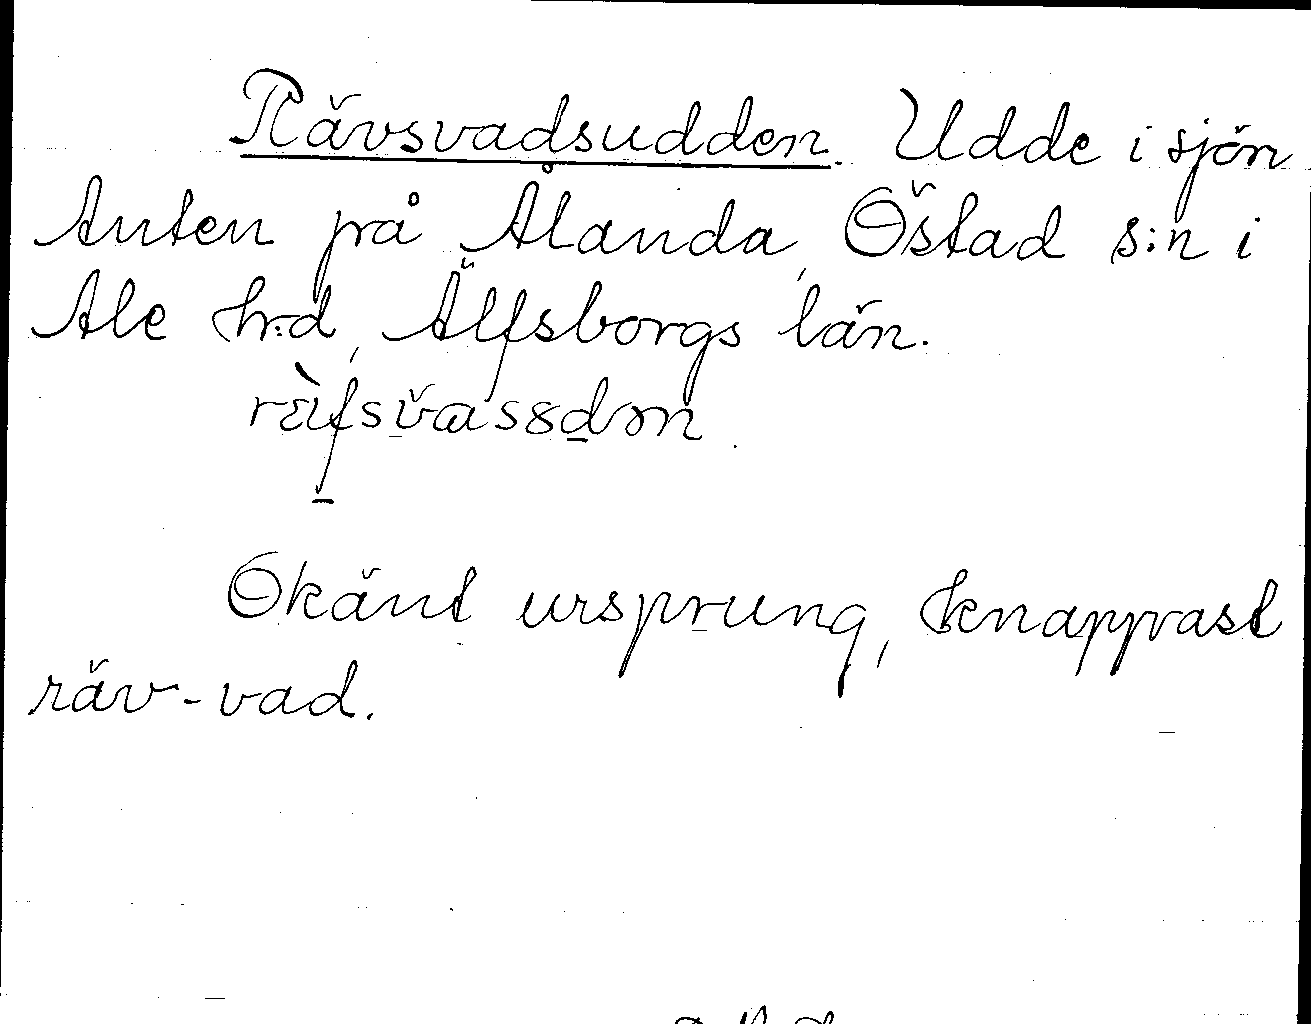 Rävsvadsudden. Udde i sjön
Anten på Ålanda, Östad s:n i
Ale h:d, Älfsborgs län.
Okänt ursprung, knappast
räv-vad.